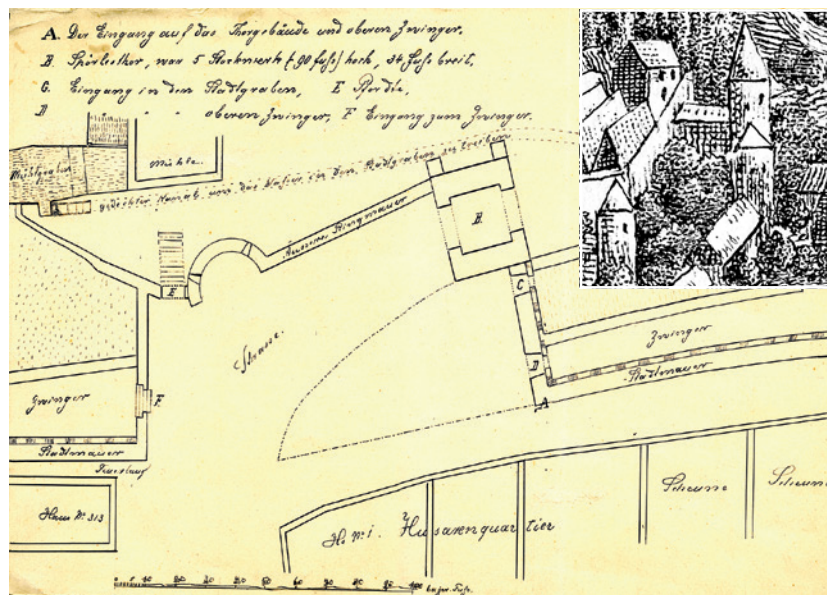 A. Der Eingang auf das Thorgebäude und oberen Zwinger.
B. Spörleother, war 5 Stockwerk (90 fuhs) hoch, 34 fuhs breit.
C. Eingang in den Stadtgraben, E Pforte,
D " " oberen Zwinger, F Eingang zum Zwinger.
Mühle
Mühlgraben
gedeckter Kanal um das Wasser in den Stadtgraben zu treiben
Aeussere Ringmauer
B.
C
E
Strasse.
Zwinger
D
Stadtmauer
A
Zwinger
F.
Stadtmauer
Haus No. 313
H. No. 1. Husarenquartier
Scheune
Scheune
0 5 10 20 30 40 50 60 70 80 90 100 bayer. Fuss.